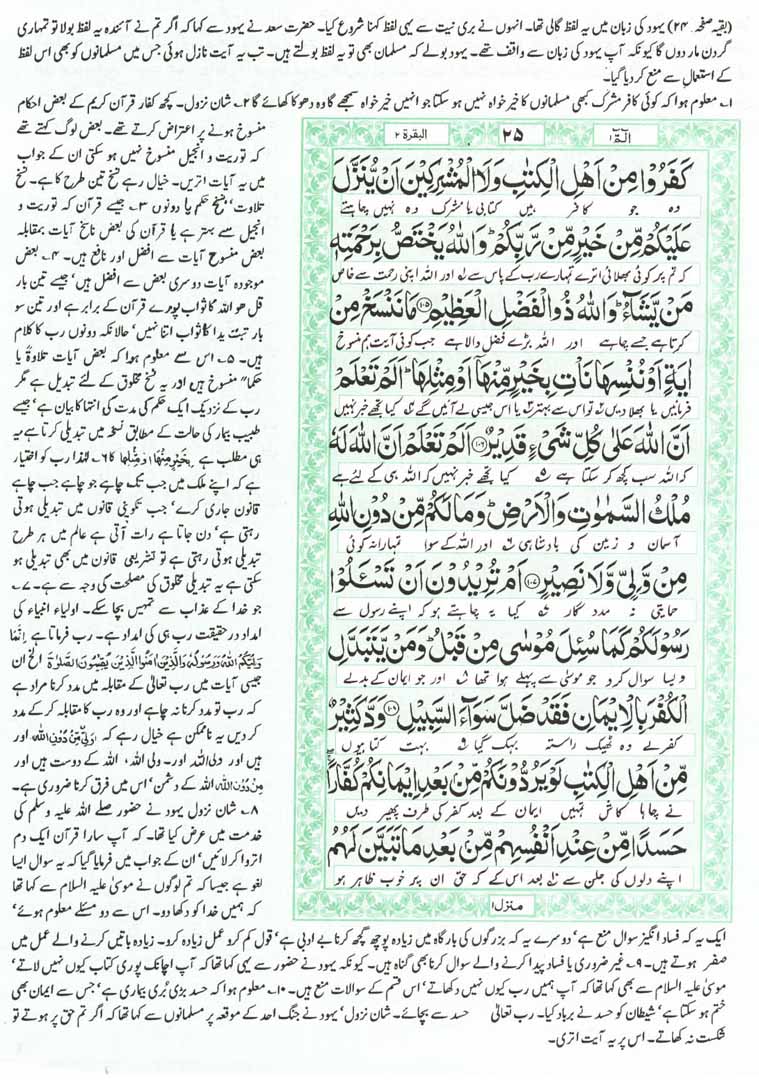 (بقیہ صفحہ ۲۴) یہود کی زبان میں یہ لفظ گالی تھا۔ انہوں نے بری نیت سے یہی لفظ کہنا شروع کیا۔ حضرت سعد نے یہود سے کہا کہ اگر تم نے آئندہ یہ لفظ بولا تو تمہاری
گردن مار دوں گا کیونکہ آپ یہود کی زبان سے واقف تھے۔ یہود بولے کہ مسلمان بھی تو یہ لفظ بولتے ہیں۔ تب یہ آیت نازل ہوئی جس میں مسلمانوں کو بھی اس لفظ
کے استعمال سے منع کر دیا گیا۔
۱۔ معلوم ہوا کہ کوئی کافر مشرک کبھی مسلمانوں کا خیر خواہ نہیں ہو سکتا جو انہیں خیر خواہ سمجھے گا وہ دھوکا کھائے گا ۲۔ شان نزول۔ کچھ کفار قرآن کریم کے بعض احکام
منسوخ ہونے پر اعتراض کرتے تھے۔ بعض لوگ کہتے تھے
کہ توریت و انجیل منسوخ نہیں ہو سکتی ان کے جواب
میں یہ آیات اتریں۔ خیال رہے نسخ تین طرح کا ہے۔ نسخ
تلاوت، نسخ حکم یا دونوں ۳۔ جیسے قرآن کہ توریت و
انجیل سے بہتر ہے یا قرآن کی بعض ناسخ آیات بمقابلہ
بعض منسوخ آیات سے افضل اور نافع ہیں۔ ۴۔ بعض
موجودہ آیات دوسری بعض سے افضل ہیں، جیسے تین بار
قل هو اللہ کا ثواب پورے قرآن کے برابر ہے اور تین سو
بار تبت یدا کا ثواب اتنا نہیں، حالانکہ دونوں رب کا کلام
ہیں۔ ۵۔ اس سے معلوم ہوا کہ بعض آیات تلاوۃً یا
حکماً منسوخ ہیں اور یہ نسخ مخلوق کے لئے تبدیلی ہے مگر
رب کے نزدیک ایک حکم کی مدت کی انتہا کا بیان ہے، جیسے
طبیب بیمار کی حالت کے مطابق نسخہ میں تبدیلی کرتا ہے یہ
ہی مطلب ہے بِخَيْرٍ مِّنْهَا اَوْ مِثْلِهَا کا ۶۔ لہٰذا رب کو اختیار
ہے کہ اپنے ملک میں جب تک چاہے جو چاہے جب چاہے
قانون جاری کرے، جب تکوینی قانون میں تبدیلی ہوتی
رہتی ہے، دن جاتا ہے رات آتی ہے عالم میں ہر طرح
تبدیلی ہوتی رہتی ہے تو تشریعی قانون میں بھی تبدیلی ہو
سکتی ہے یہ تبدیلی مخلوق کی مصلحت کی وجہ سے ہے۔ ۷۔
جو خدا کے عذاب سے تمہیں بچا سکے۔ اولیاء انبیاء کی
امداد در حقیقت رب ہی کی امداد ہے۔ رب فرماتا ہے اِنَّمَا
وَلِيُّكُمُ اللهُ وَرَسُوْلُهٗ وَالَّذِيْنَ اٰمَنُوا الَّذِيْنَ يُقِيْمُوْنَ الصَّلٰوةَ الخ ان
جیسی آیات میں رب تعالیٰ کے مقابلہ میں مدد کرنا مراد ہے
کہ رب تو مدد کرنا نہ چاہے اور وہ رب کا مقابلہ کر کے مدد
کر دیں یہ ناممکن ہے خیال رہے کہ وَلِيٍّ مِّنْ دُوْنِ اللهِ اور
ہیں اور ولی اللہ اور۔ ولی اللہ، اللہ کے دوست ہیں اور
مِنْ دُوْنِ اللهِ اللہ کے دشمن، اس میں فرق کرنا ضروری ہے۔
۸۔ شان نزول یہود نے حضور صلے اللہ علیہ وسلم کی
خدمت میں عرض کیا تھا۔ کہ آپ سارا قرآن ایک دم
اتروا کر لائیں، ان کے جواب میں فرمایا گیا کہ یہ سوال ایسا
لغو ہے جیسا کہ تم لوگوں نے موسیٰ علیہ السلام سے کہا تھا
کہ ہمیں خدا کو دکھا دو۔ اس سے دو مسئلے معلوم ہوئے،
الٓمٓ ۱
۲۵
البقرۃ ۲
كَفَرُوْا مِنْ اَهْلِ الْكِتٰبِ وَلَا الْمُشْرِكِيْنَ اَنْ يُّنَزَّلَ
وہ جو کافر ہیں کتابی یا مشرک وہ نہیں چاہتے
عَلَيْكُمْ مِّنْ خَيْرٍ مِّنْ رَّبِّكُمْ ؕ وَاللهُ يَخْتَصُّ بِرَحْمَتِهٖ
کہ تم پر کوئی بھلائی اترے تمہارے رب کے پاس سے ۱ اور اللہ اپنی رحمت سے خاص
مَنْ يَّشَآءُ ؕ وَاللهُ ذُو الْفَضْلِ الْعَظِيْمِ ۝۱۰۵ مَا نَنْسَخْ مِنْ
کرتا ہے جسے چاہے اور اللہ بڑے فضل والا ہے جب کوئی آیت ہم منسوخ
اٰيَةٍ اَوْ نُنْسِهَا نَاْتِ بِخَيْرٍ مِّنْهَاۤ اَوْ مِثْلِهَا ؕ اَلَمْ تَعْلَمْ
فرمائیں یا بھلا دیں ۲ تو اس سے بہتر ۳ یا اس جیسی لے آئیں گے ۴ کیا تجھے خبر نہیں
اَنَّ اللهَ عَلٰى كُلِّ شَىْءٍ قَدِيْرٌ ۝۱۰۶ اَلَمْ تَعْلَمْ اَنَّ اللهَ لَهٗ
کہ اللہ سب کچھ کر سکتا ہے ۵ کیا تجھے خبر نہیں کہ اللہ ہی کے لئے ہے
مُلْكُ السَّمٰوٰتِ وَالْاَرْضِ ؕ وَمَا لَكُمْ مِّنْ دُوْنِ اللهِ
آسمان و زمین کی بادشاہی ۶ اور اللہ کے سوا تمہارا نہ کوئی
مِنْ وَّلِيٍّ وَّلَا نَصِيْرٍ ۝۱۰۷ اَمْ تُرِيْدُوْنَ اَنْ تَسْـَٔلُوْا
حمایتی نہ مددگار ۷ کیا یہ چاہتے ہو کہ اپنے رسول سے
رَسُوْلَكُمْ كَمَا سُئِلَ مُوْسٰى مِنْ قَبْلُ ؕ وَمَنْ يَّتَبَدَّلِ
ویسا سوال کرو جو موسیٰ سے پہلے ہوا تھا ۸ اور جو ایمان کے بدلے
الْكُفْرَ بِالْاِيْمَانِ فَقَدْ ضَلَّ سَوَآءَ السَّبِيْلِ ۝۱۰۸ وَدَّ كَثِيْرٌ
کفر لے وہ ٹھیک راستہ بہک گیا ۹ بہت کتابیوں
مِّنْ اَهْلِ الْكِتٰبِ لَوْ يَرُدُّوْنَكُمْ مِّنْ بَعْدِ اِيْمَانِكُمْ كُفَّارًا
نے چاہا کاش تمہیں ایمان کے بعد کفر کی طرف پھیر دیں
حَسَدًا مِّنْ عِنْدِ اَنْفُسِهِمْ مِّنْ بَعْدِ مَا تَبَيَّنَ لَهُمُ
اپنے دلوں کی جلن سے ۱۰ بعد اس کے کہ حق ان پر خوب ظاہر ہو
منزل ۱
ایک یہ کہ فساد انگیز سوال منع ہے، دوسرے یہ کہ بزرگوں کی بارگاہ میں زیادہ پوچھ گچھ کرنا بے ادبی ہے، قول کم کرو عمل زیادہ کرو۔ زیادہ باتیں کرنے والے عمل میں
صفر ہوتے ہیں۔ ۹۔ غیر ضروری یا فساد پیدا کرنے والے سوال کرنا بھی گناہ ہیں۔ کیونکہ یہود نے حضور سے یہی کہا تھا کہ آپ اچانک پوری کتاب کیوں نہیں لاتے،
موسیٰ علیہ السلام سے بھی کہا تھا کہ آپ ہمیں رب کیوں نہیں دکھاتے، اس قسم کے سوالات منع ہیں۔ ۱۰۔ معلوم ہوا کہ حسد بڑی بُری بیماری ہے، جس سے ایمان بھی
ختم ہو سکتا ہے، شیطان کو حسد نے برباد کیا۔ رب تعالیٰ حسد سے بچائے۔ شان نزول، یہود نے جنگ احد کے موقعہ پر مسلمانوں سے کہا تھا کہ اگر تم حق پر ہوتے تو
شکست نہ کھاتے۔ اس پر یہ آیت اتری۔